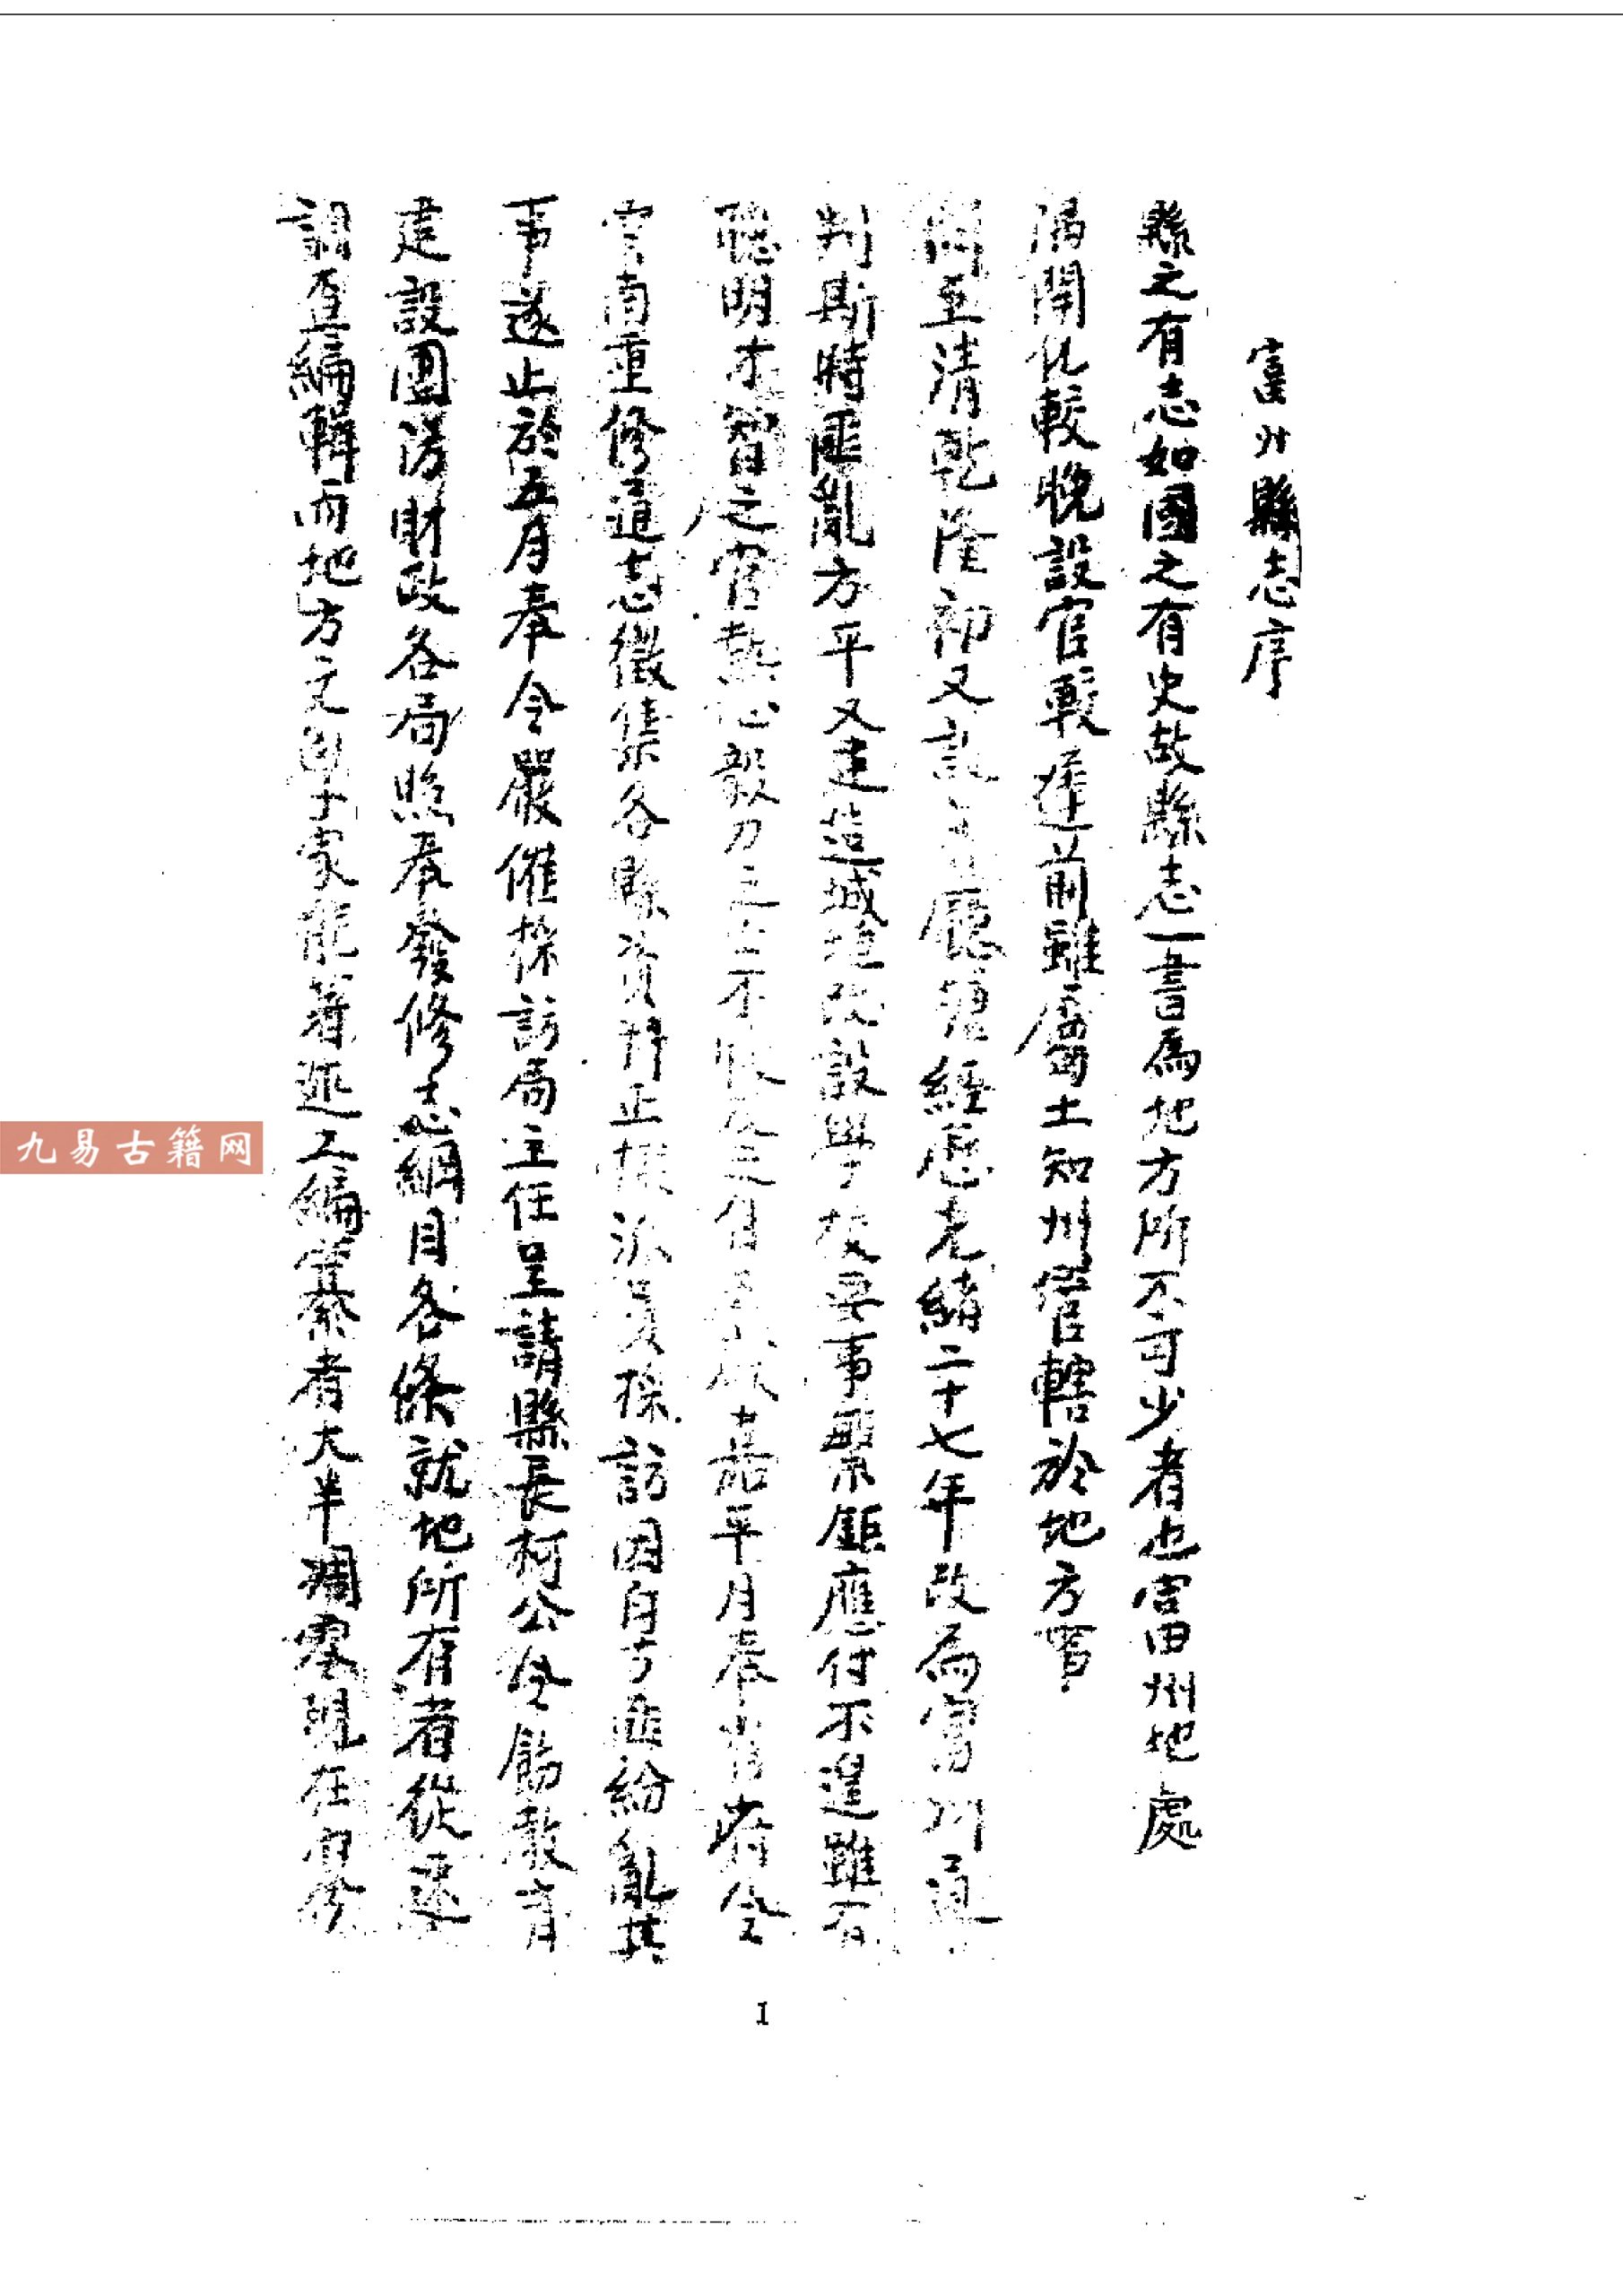 富州縣志序
縣之有志如國之有史故縣志一書為地方所不可少者也富州地處
開化較晚設官較遲前雖屬土知州管轄於地方
至清乾隆初又設廳經歷光緒二十七年改為富州通
判斯時匪亂方平又建造城池改設學校要事繁鉅應付不遑雖有
聰明才智之官熱心毅力之平月奉省府令
重修通志徵集各縣資料正擬派員採訪因匪紛亂其
事遂止於五月奉令嚴催採訪局主任呈請縣長柯公令飭教育
建設團防財政各局照奉發修志綱目各條就地所有者從速
調查編輯而地方文學家能著述工編纂者大半凋零現在
九易古籍网
1